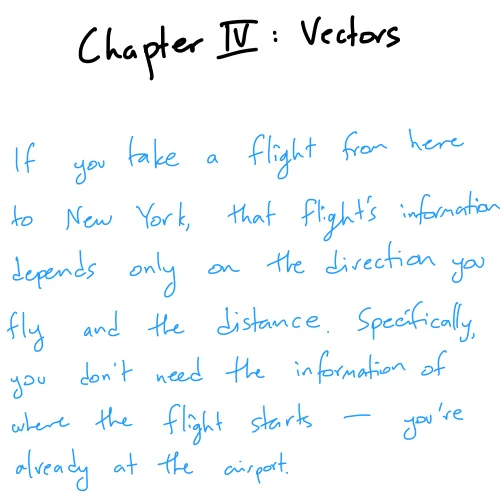 Chapter IV: Vectors
If you take a flight from here
to New York, that flight's information
depends only on the direction you
fly and the distance. Specifically,
you don't need the information of
where the flight starts — you're
already at the airport.